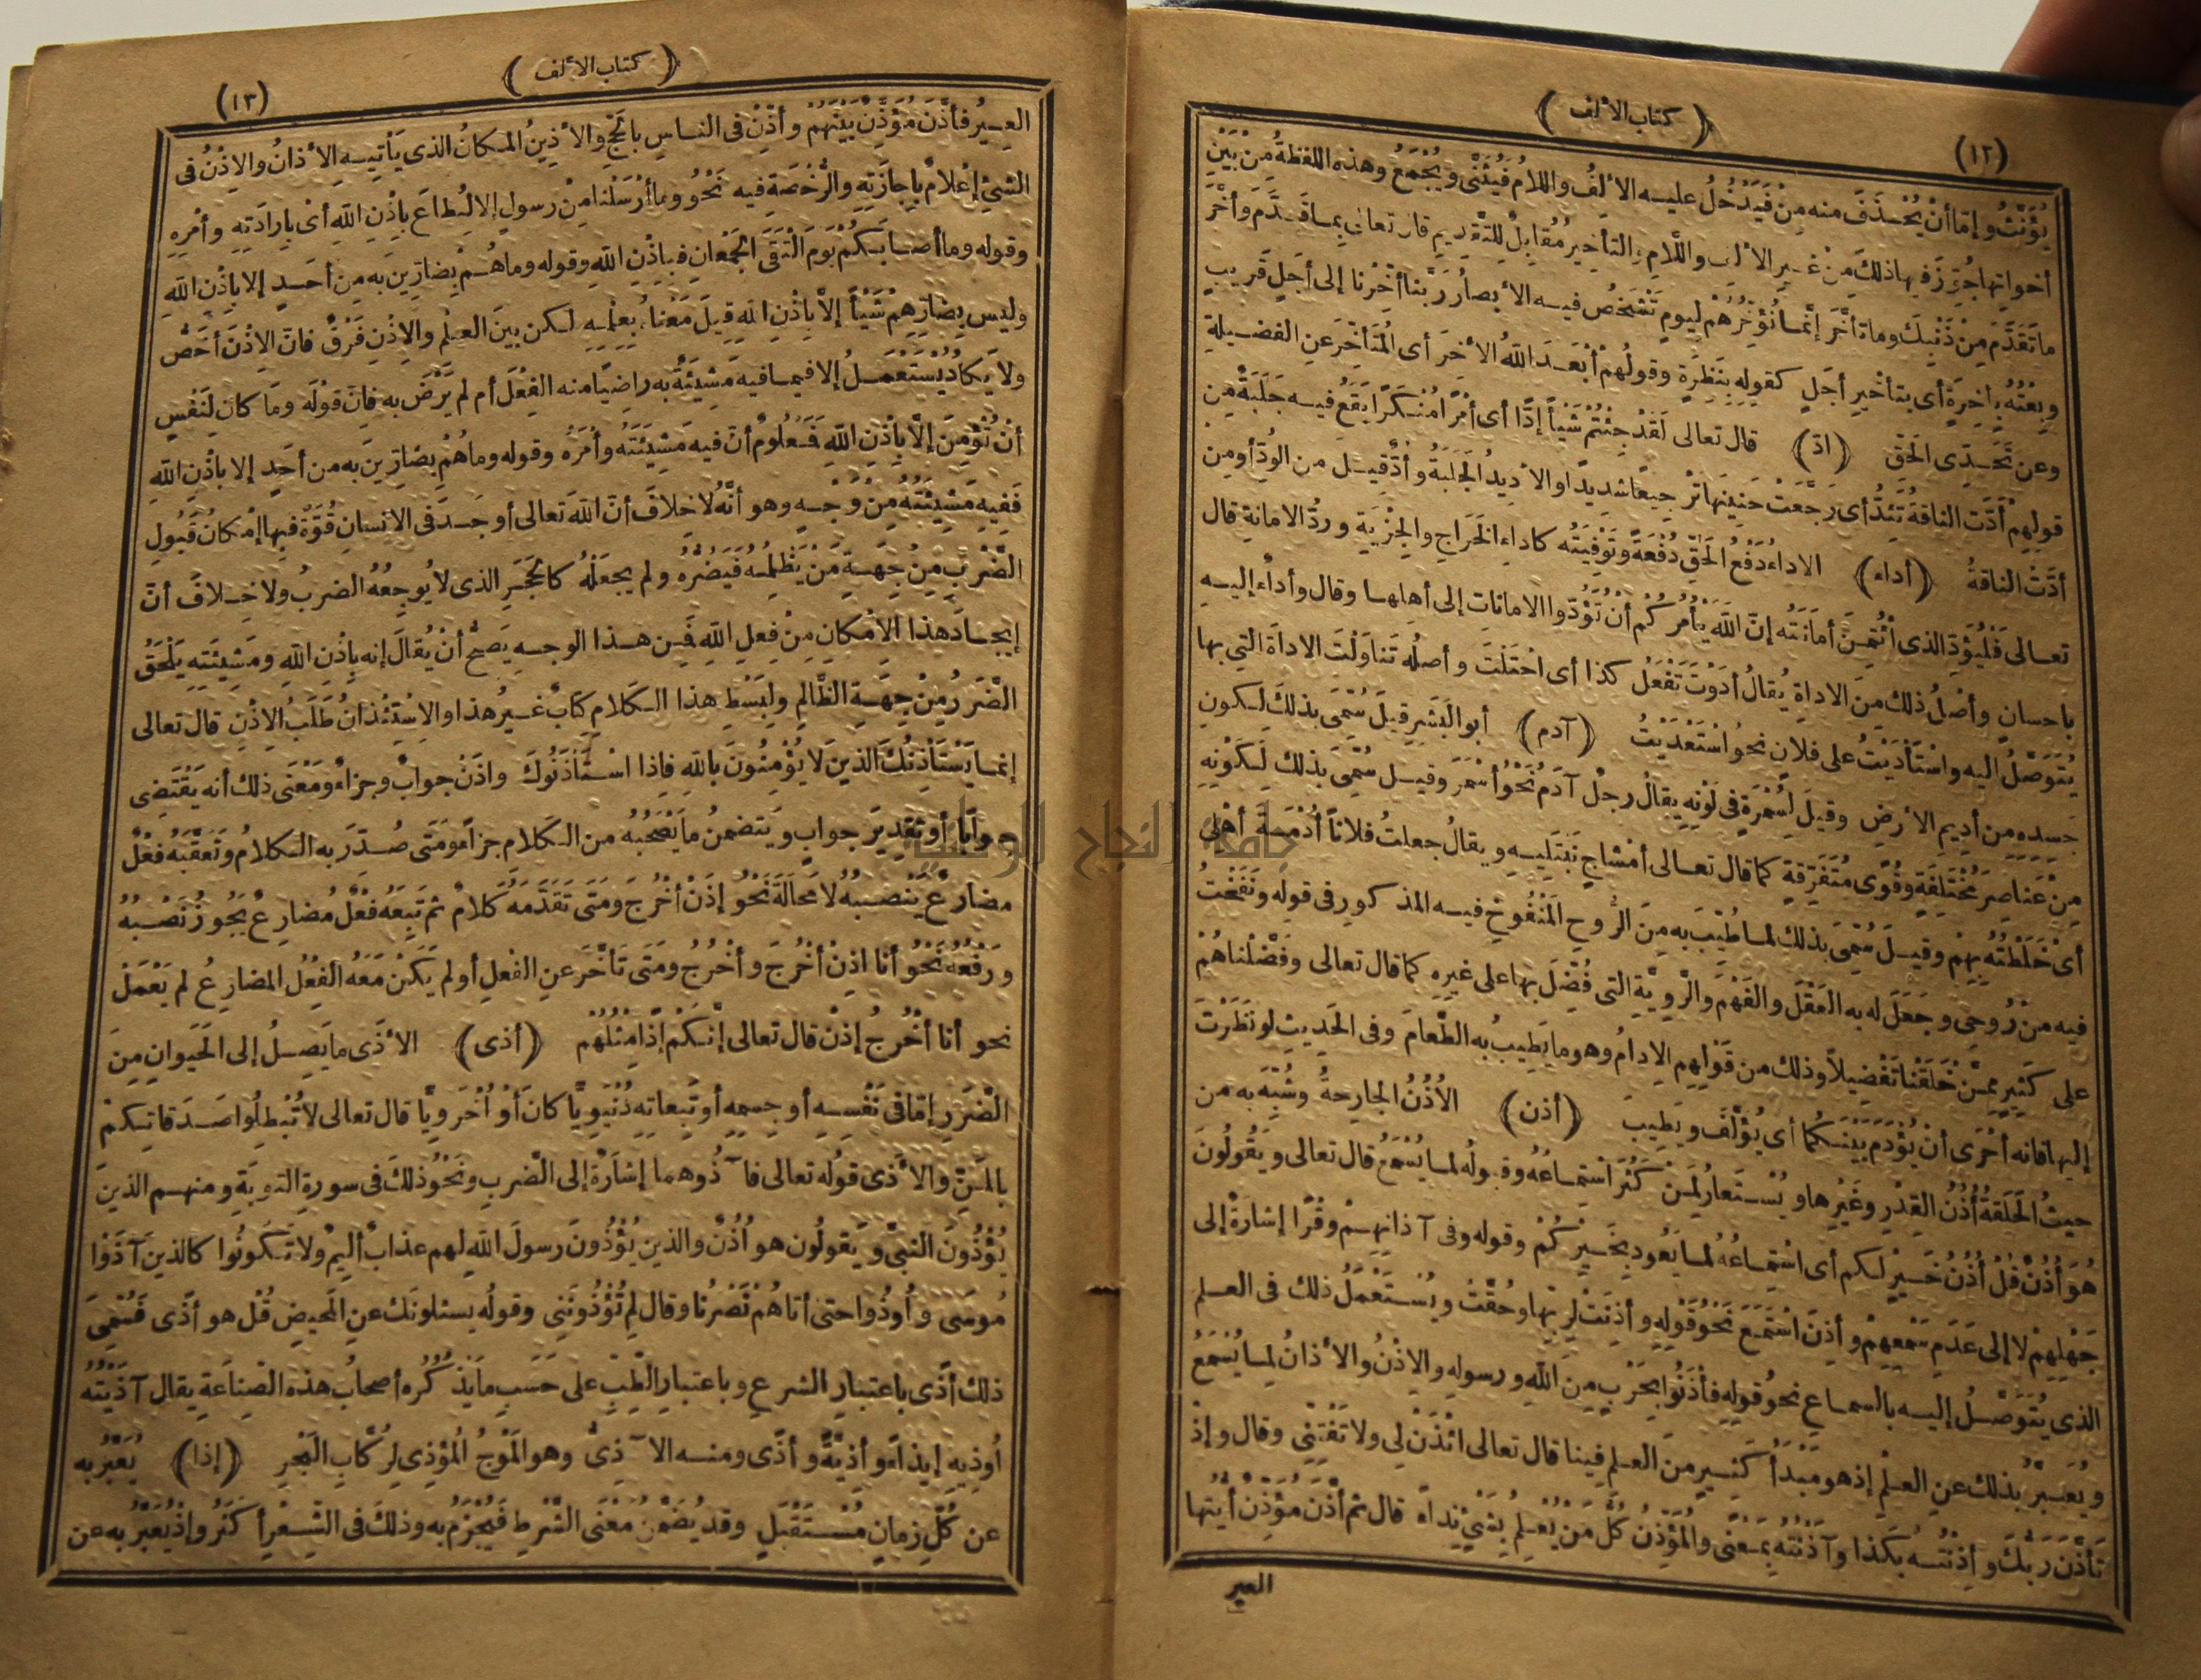 (١٢)
(كتاب الألف)
يُؤَنَّثُ وإمّا أنْ يُحْذَفَ منه مِنْ فَيَدْخُلُ عليه الألِفُ واللامُ فَيُثَنَّى ويُجْمَعُ وهذه اللفظةُ مِنْ بَيْنِ
أخواتها جُوِّزَ فيها ذلكَ مِنْ غيرِ الألِفِ واللَّامِ والتأخيرُ مُقابِلٌ للتّقْدِيمِ قال تعالى بِما قَدَّمَ وأخَّرَ
ما تَقَدَّمَ مِنْ ذَنْبِكَ وما تأخَّرَ إنَّما نُؤَخِّرُهُمْ لِيومٍ تَشْخَصُ فيه الأبصارُ رَبَّنا أَخِّرْنا إلى أجَلٍ قَرِيبٍ
وبِعْتُهُ بِأَخِرَةٍ أى بتأخيرِ أجَلٍ كقوله بِنَظِرَةٍ وقولُهُمْ أبْعَدَ اللهُ الأخِرَ أى المُتَأخِّرَ عنِ الفضيلةِ
وعن تَحَرِّى الحَقِّ (ادّ) قال تعالى لَقَدْ جِئْتُمْ شَيْأً إدًّا أى أمْرًا مُنْكَرًا يَقَعُ فيه جَلَبَةٌ مِن
قولِهِمْ أَدَّتِ الناقةُ تَئِدُّ أى رَجَّعَتْ حَنِينَها تَرْجيعًا شديدًا والأدِيدُ الجَلَبَةُ وأدٌّ قيلَ من الوُدِّ أو من
أدَّتْ الناقةُ (أداء) الاداءُ دَفْعُ الحَقِّ دُفْعَةً وتَوْفِيَتُه كاداءِ الخَرَاجِ والجِزْيَةِ وردُّ الامانةِ قال
تعالى فَلْيُؤَدِّ الذى ائْتُمِنَ أمانَتَه إنّ اللهَ يَأمُرُكُم أنْ تُؤَدُّوا الاماناتِ إلى أهلِها وقال وأداءٌ إليه
باحسانٍ وأصْلُ ذلك مِنَ الاداةِ يُقالُ أدَوْتَ تَفْعَلُ كذا أى احْتَلْتَ وأصلُه تَناوَلْتَ الاداةَ التى بها
يُتَوَصَّلُ اليه واسْتَأْدَيْتُ على فلانٍ نحوُ اسْتَعْدَيْتُ (آدم) أبو البَشَرِ قيلَ سُمِّىَ بذلكَ لِكونِ
جَسَدِه من أديمِ الأرضِ وقيلَ لِسُمْرَةٍ فى لَوْنِهِ يقالُ رجلٌ آدَمُ نَحْوُ أسْمَرَ وقيل سُمِّىَ بذلك لِكَوْنِهِ
مِنْ عَناصِرَ مُخْتَلِفَةٍ وقُوًى مُتَفَرِّقةٍ كما قال تعالى أمْشاجٍ نَبْتَلِيهِ ويقالُ جعلتُ فلاناً أُدْمَةَ أهْلِى
أىْ خَلَطْتُهُ بِهِمْ وقيلَ سُمِّىَ بذلك لما طُيِّبَ به مِنَ الرُّوحِ المَنْفُوخِ فيه المذكورِ فى قوله ونَفَخْتُ
فيه مِنْ رُوحِى وجَعَلَ له به العَقْلَ والفَهْمَ والرَّوِيَّةِ التى فُضِّلَ بها على غيرِهِ كما قال تعالى وفَضَّلْناهُمْ
على كَثيرٍ مِمَّنْ خَلَقْنا تَفْضِيلًا وذلك من قَوْلِهِم الإدامُ وهو ما يَطِيبُ به الطّعامَ وفى الحَدِيثِ لو نَظَرْتَ
إليها فانه أحْرَى أنْ يُؤْدَمَ بَيْنَكُما أى يُؤَلَّفَ ويَطِيبَ (أذن) الأُذُنُ الجارحةُ وشُبِّهَ به من
حيثُ الحَلَقَةُ أُذُنُ القِدْرِ وغَيْرِها ويُسْتَعارُ لِمَنْ كَثُرَ اسْتِماعُهُ وقبولُه لما يُسْمَعُ قال تعالى ويَقُولُونَ
هُوَ أُذُنٌ قُلْ أُذُنُ خَيْرٍ لكم أى اسْتِماعُهُ لما يَعُودُ بِخَيْرِكُمْ وقوله وفى آذانِهِمْ وقْرًا إشارةٌ إلى
جَهْلِهِمْ لا إلى عَدَمِ سَمْعِهِمْ وأذِنَ اسْتَمَعَ نَحْوُ قَوْلِهِ وأذِنَتْ لِرَبِّها وحُقَّتْ ويُسْتَعْمَلُ ذلك فى العلمِ
الذى يُتَوَصَّلُ إليه بالسماعِ نحوُ قولِهِ فأْذَنُوا بِحَرْبٍ مِنَ اللهِ ورسولِهِ والإذْنُ والأذانُ لِما يُسْمَعُ
ويُعَبَّرُ بذلك عنِ العلْمِ إذ هو مَبْدَأُ كَثيرٍ مِنَ العلمِ فينا قال تعالى ائْذَنْ لى ولا تَفْتِنِّى وقال وإذْ
تَأَذَّنَ رَبُّكَ وأذِنْتُه بكذا وآذَنْتُه بمعْنًى والمُؤَذِّنُ كُلُّ مَنْ يُعْلِمُ بِشَىْءٍ نِداءً قال ثم أذَّنَ مُؤَذِّنٌ أيتها
العير
(كتاب الألف)
(١٣)
العيرُ فأذَّنَ مُؤَذِّنٌ بَيْنَهُمْ وأذِّنْ فى الناسِ بالحَجِّ والأَذِينُ المكانُ الذى يَأْتِيهِ الأذانُ والإذْنُ فى
الشئِ إعْلامٌ بِإجازَتِهِ والرُّخْصَةِ فيه نَحْوُ وما أرْسَلْنا مِنْ رسولٍ إلا لِيُطاعَ بإذْنِ اللهِ أىْ بإرادَتِهِ وأمْرِهِ
وقوله وما أصابَكُمْ يَومَ الْتَقَى الجَمْعانِ فبإذْنِ اللهِ وقوله وما هُمْ بِضارِّينَ به مِنْ أحَدٍ إلا بإذْنِ اللهِ
وليس بِضارِّهِمْ شَيْأً إلاّ بإذْنِ اللهِ قِيلَ مَعْناه بِعِلْمِهِ لكن بينَ العلْمِ والإذْنِ فَرْقٌ فانّ الإذْنَ أخَصُّ
ولا يَكادُ يُسْتَعْمَلُ إلا فيما فيه مَشِيئَةٌ به راضِيًا منه الفِعْلَ أم لم يَرْضَ به فانّ قولَه وما كان لِنَفْسٍ
أنْ تُؤْمِنَ إلاّ بِإذْنِ اللهِ فَمَعْلُومٌ أنّ فيه مَشِيئَتَهُ وأمْرَهُ وقوله وما هُمْ بِضارِّينَ به من أحَدٍ إلا بإذْنِ اللهِ
فَفِيهِ مَشِيئَتُهُ مِنْ وَجْهٍ وهو أنَّهُ لا خِلافَ أنّ اللهَ تعالى أوجَدَ فى الإنسانِ قُوّةً فيها إمْكانُ قَبُولِ
الضَّرْبِ مِنْ جِهَةِ مَنْ يَظْلِمُهُ فَيَضُرُّه ولم يجعلْهُ كالحَجَرِ الذى لا يُوجِعُهُ الضربُ ولا خِلافَ أنّ
إيجادَ هذا الإمْكانِ مِنْ فِعلِ اللهِ فَمِن هذا الوجهِ يَصِحُّ أنْ يُقالَ إنه بإذْنِ اللهِ ومَشِيئَتِهِ يَلْحَقُ
الضَّرَرُ مِنْ جِهَةِ الظّالِمِ ولِبَسْطِ هذا الكَلامِ كِتابٌ غيرُ هذا والاسْتِئْذانُ طَلَبُ الإذْنِ قال تعالى
إنما يَسْتَأْذِنُكَ الذينَ لا يُؤْمِنُونَ باللهِ فإذا اسْتَأذَنُوكَ واذَنْ جوابٌ وجزاءٌ ومَعْنَى ذلك أنه يَقْتَضِى
جوابًا أو تَقْدِيرَ جوابٍ ويَتضمنُ ما يَصْحَبُهُ من الكَلامِ جزاءً ومَتَى صُدِّرَ به الكلامُ وتَعَقَّبَهُ فِعْلٌ
مضارعٌ يَنْصِبُهُ لا مَحالَةَ نَحْوُ إذَنْ أخْرُجَ ومَتَى تَقَدَّمَهُ كَلامٌ ثم تَبِعَهُ فِعْلٌ مُضارِعٌ يَجُوزُ نَصْبُهُ
ورَفْعُهُ نَحْوُ أنا اذِنْ أخْرُجَ وأخْرُجُ ومَتَى تَأخَّرَ عنِ الفعْلِ أو لم يَكُنْ مَعَهُ الفِعْلُ المضارعُ لم يَعْمَلْ
نحو أنا أخْرُجُ إذنْ قال تعالى إنّكُمْ إذًا مِثْلُهُمْ (أذى) الأذَى ما يَصِلُ إلى الحَيَوانِ مِنَ
الضَّرَرِ إمّا فى نَفْسِهِ أو جِسمِهِ أو تَبِعاتِهِ دُنْيَوِيًّا كانَ أوْ أُخْرَوِيًّا قال تعالى لا تُبْطِلُوا صَدَقاتِكمْ
بالمَنِّ والأذَى قولُه تعالى فآذُوهما إشارَةٌ إلى الضربِ ونَحْوُ ذلكَ فى سورةِ التوبَةِ ومنهم الذينَ
يُؤْذُونَ النبىَّ ويَقولُون هو أُذُنٌ والذين يُؤْذُونَ رسولَ اللهِ لهم عذابٌ أليمٌ ولا تَكونُوا كالذينَ آذَوْا
مُوسَى وأُوذُوا حتى أتاهُمْ نَصْرُنا وقال لِمَ تُؤْذُونَنِى وقولُه يسئلونَك عنِ المَحيضِ قُلْ هو أذًى فَسُمِّىَ
ذلك أذًى باعتبارِ الشرعِ وباعتبارِ الطِّبِّ على حَسَبِ ما يَذْكُرُه أصحابُ هذه الصِّناعَةِ يقال آذَيْتُه
أُوذِيهِ إيذاءً وأذِيَّةً وأذًى ومنه الآذِىُّ وهو المَوْجُ المُؤْذِى لِرُكّابِ البَحْرِ (إذا) يُعَبَّرُ به
عن كُلِّ زمانٍ مُسْتَقْبَلٍ وقد يُضَمَّنُ مَعْنَى الشَّرْطِ فَيُجْزَمُ به وذلكَ فى الشِّعْرِ أكْثَرُ وإذْ يُعَبَّرُ به عن
جامعة النجاح الوطنية